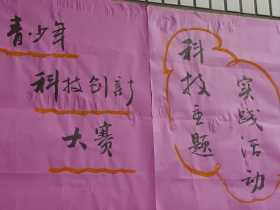 青少年
科技创新
大赛
科技主题
实践活动